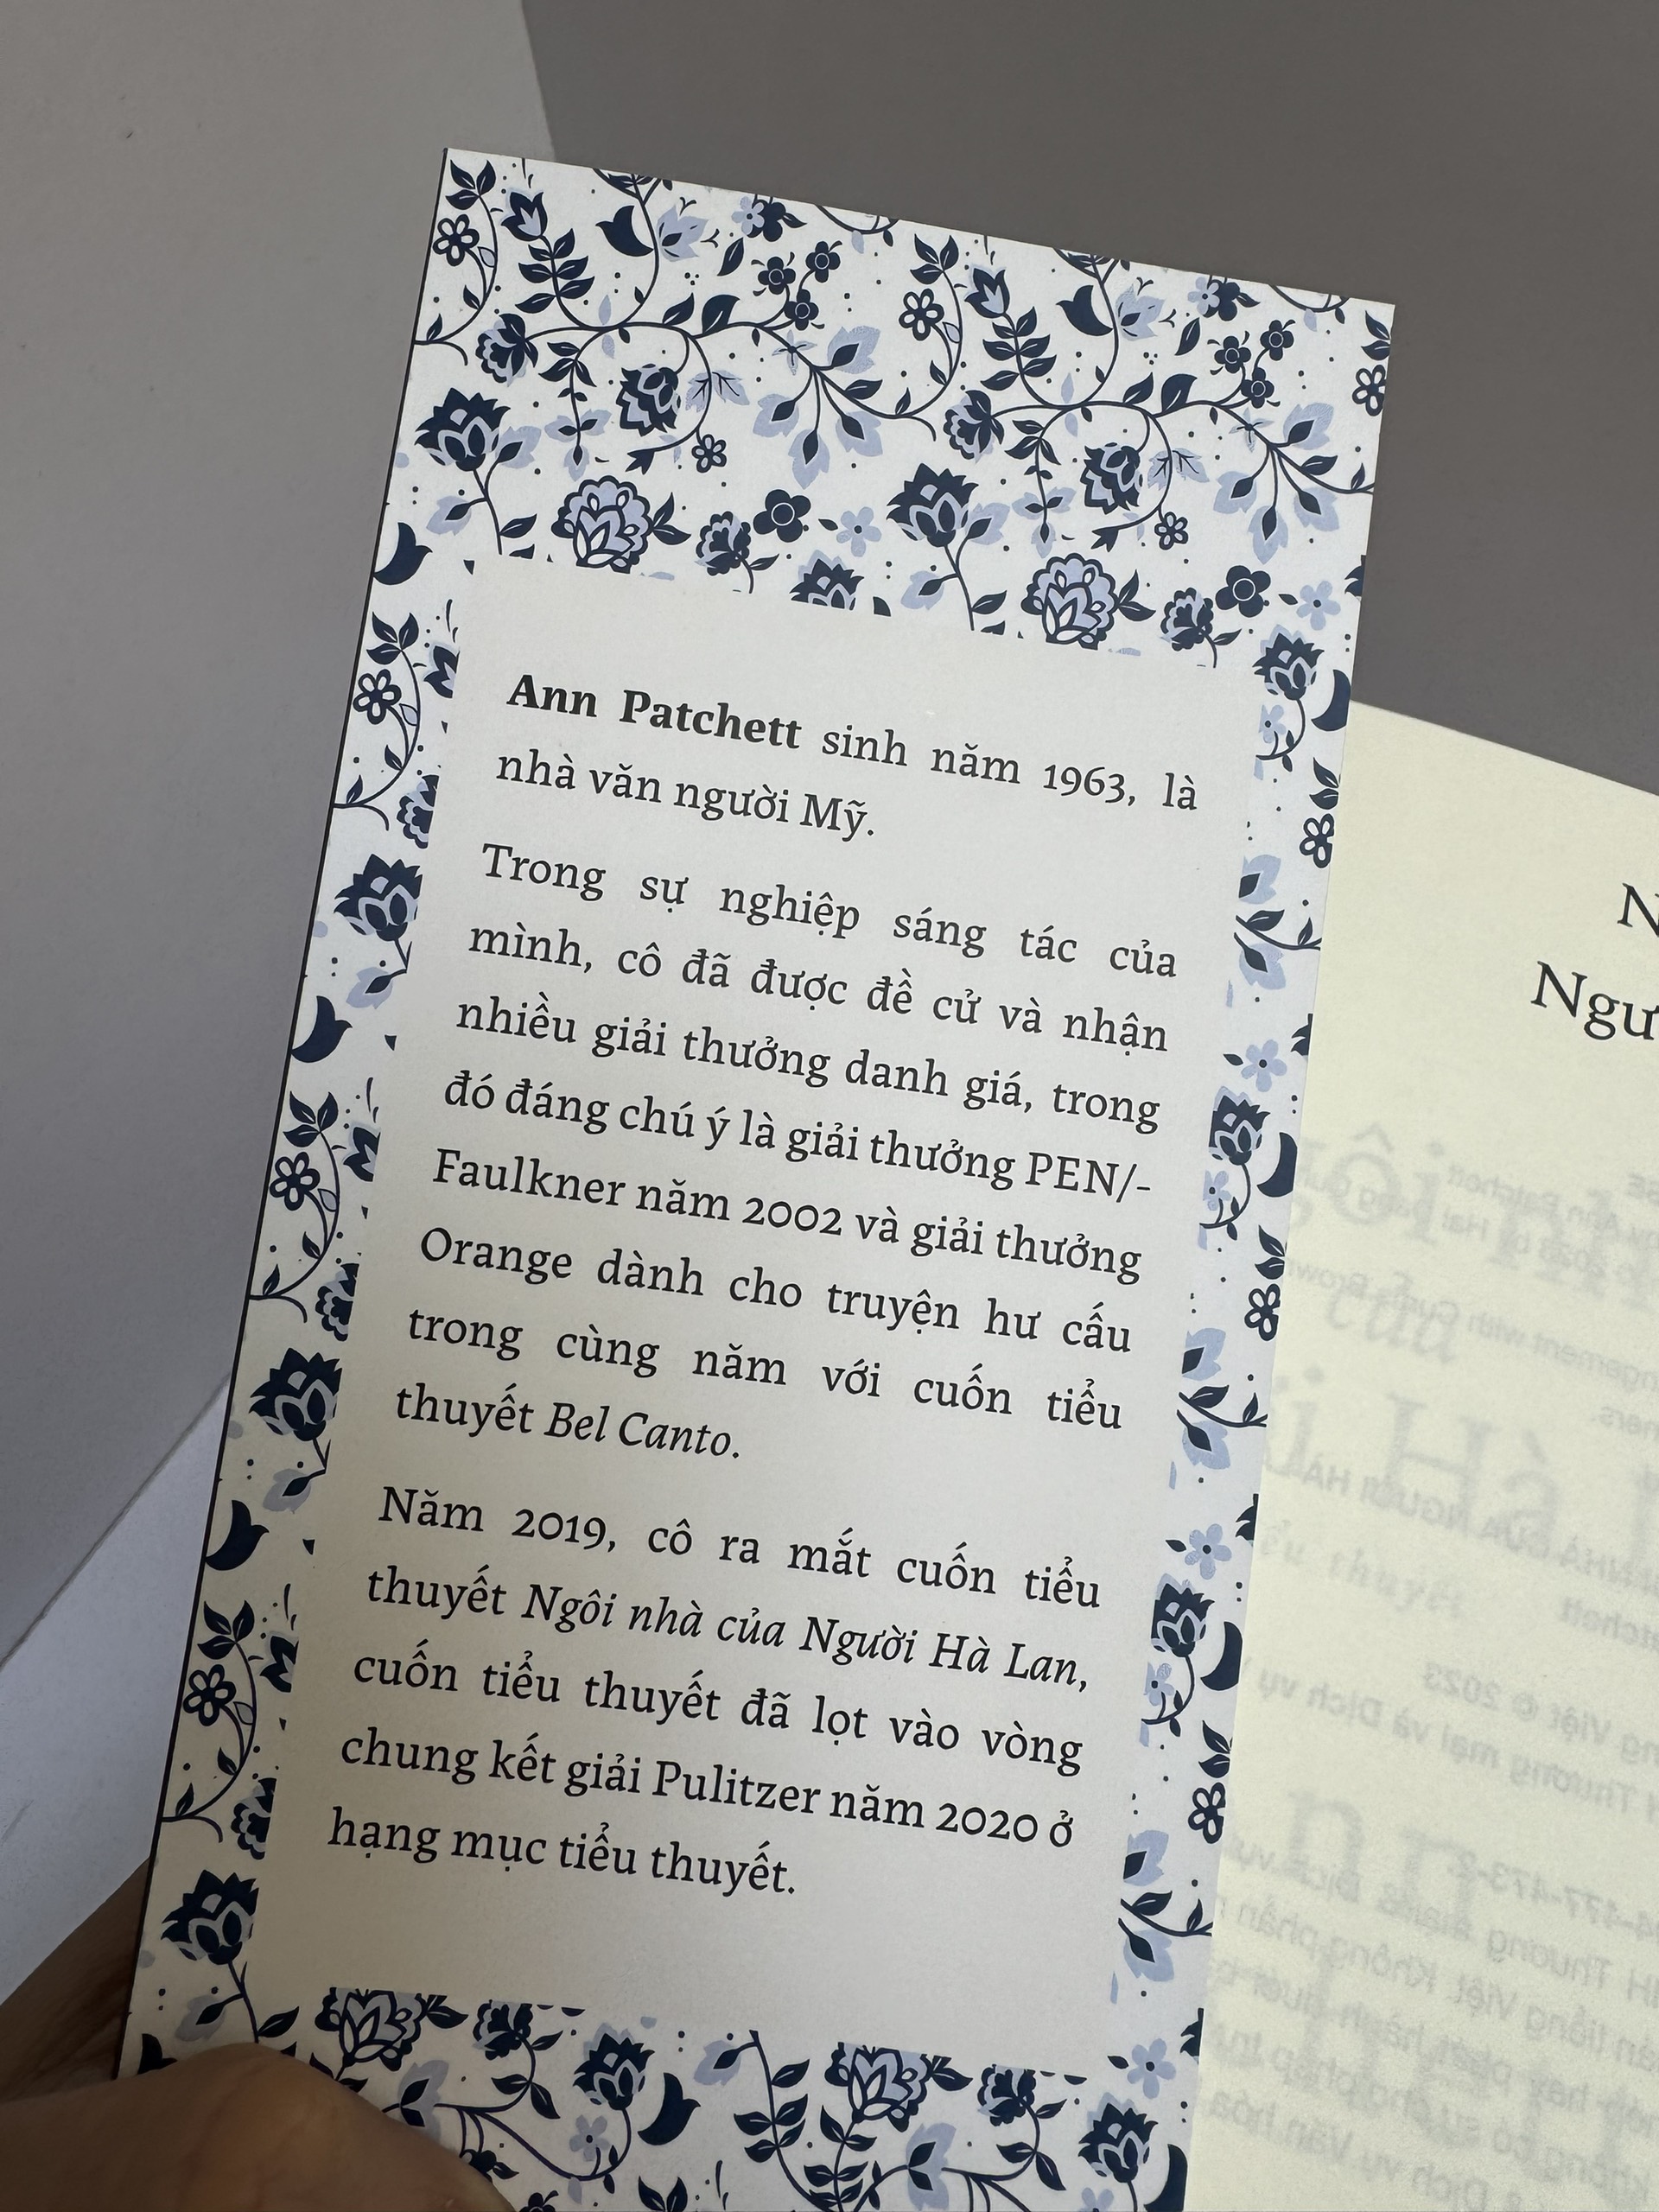 Ann Patchett sinh năm 1963, là
nhà văn người Mỹ.
Trong sự nghiệp sáng tác của
mình, cô đã được đề cử và nhận
nhiều giải thưởng danh giá, trong
đó đáng chú ý là giải thưởng PEN/-
Faulkner năm 2002 và giải thưởng
Orange dành cho truyện hư cấu
trong cùng năm với cuốn tiểu
thuyết Bel Canto.
Năm 2019, cô ra mắt cuốn tiểu
thuyết Ngôi nhà của Người Hà Lan,
cuốn tiểu thuyết đã lọt vào vòng
chung kết giải Pulitzer năm 2020 ở
hạng mục tiểu thuyết.